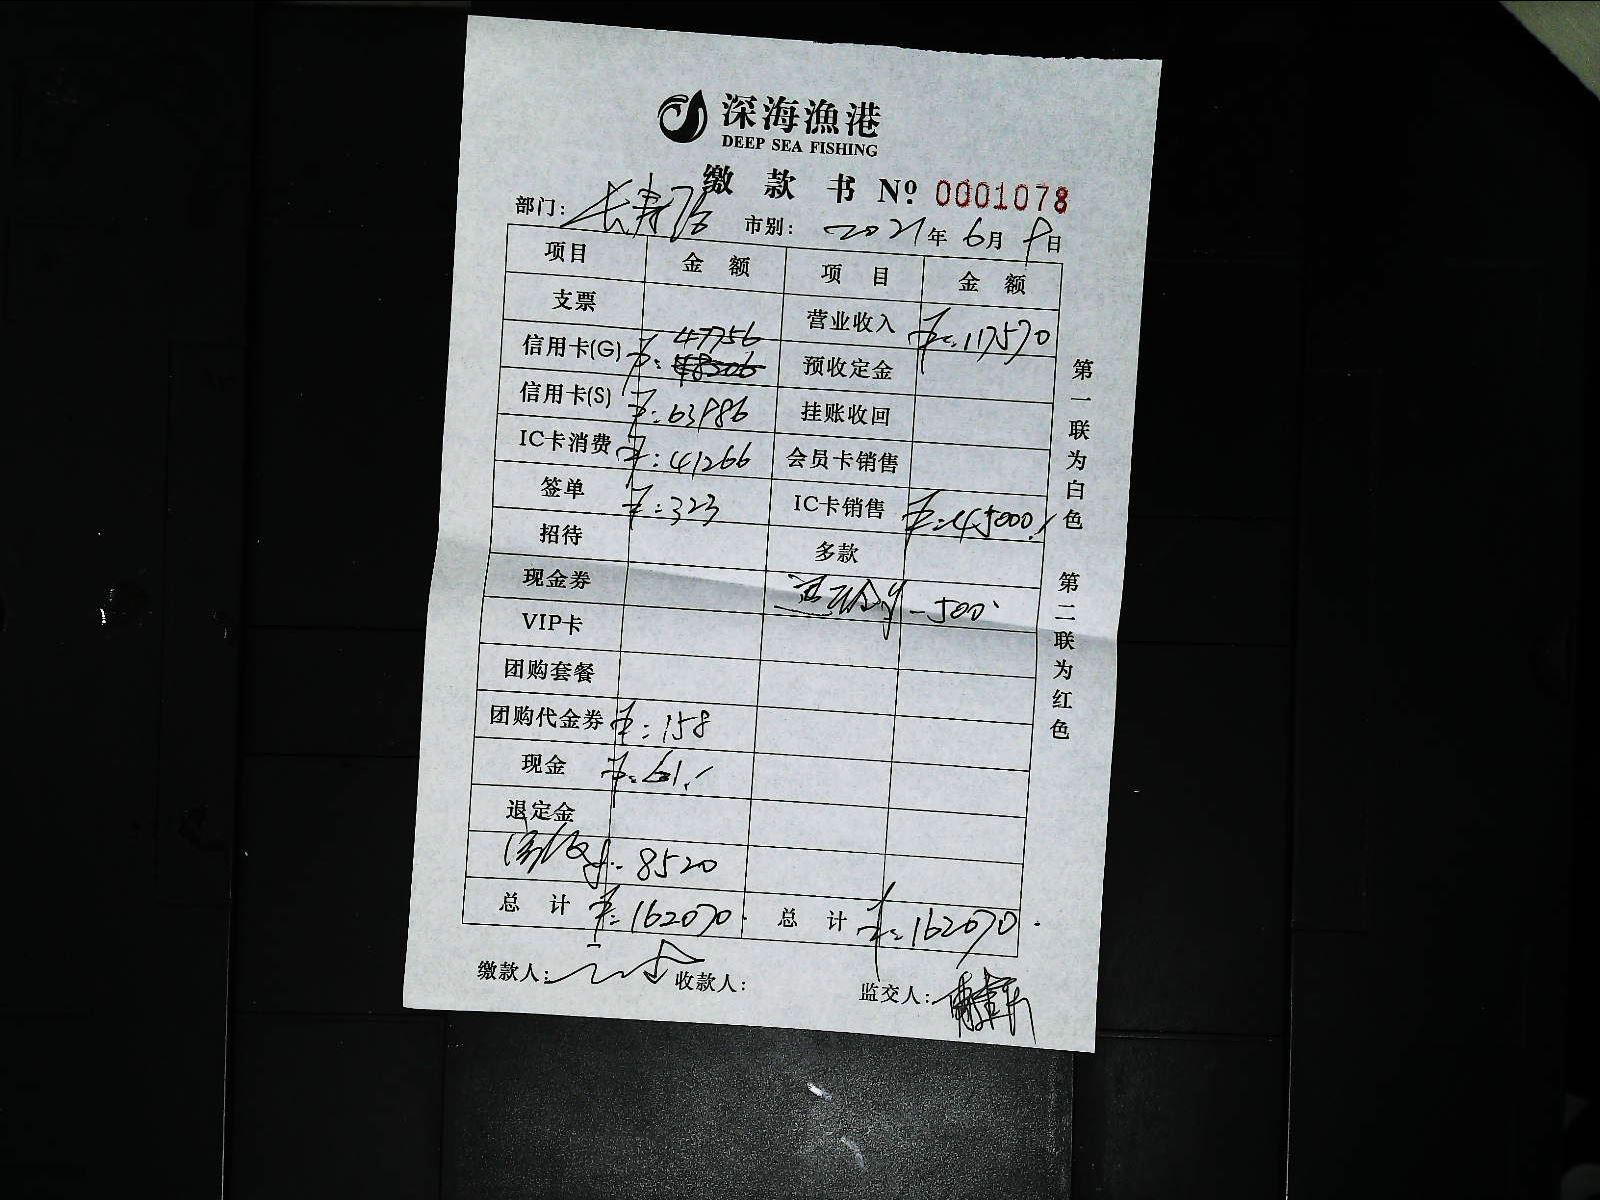 深海漁港
DEEP SEA FISHING
缴款书 Nº 0001078
部门: 长寿路 市别: 2021年6月9日
项目 金额 项目 金额
支票 营业收入 ¥:117570
信用卡(G) ¥:47756 预收定金
信用卡(S) ¥:63986 挂账收回
IC卡消费 ¥:41266 会员卡销售
签单 ¥:323 IC卡销售 ¥:45000
招待 多款
现金券 -500
VIP卡
团购套餐
团购代金券 ¥:158
现金 ¥:61
退定金
8520
总计 ¥:162070 总计 ¥:162070
缴款人: 收款人: 监交人:
第一联为白色 第二联为红色